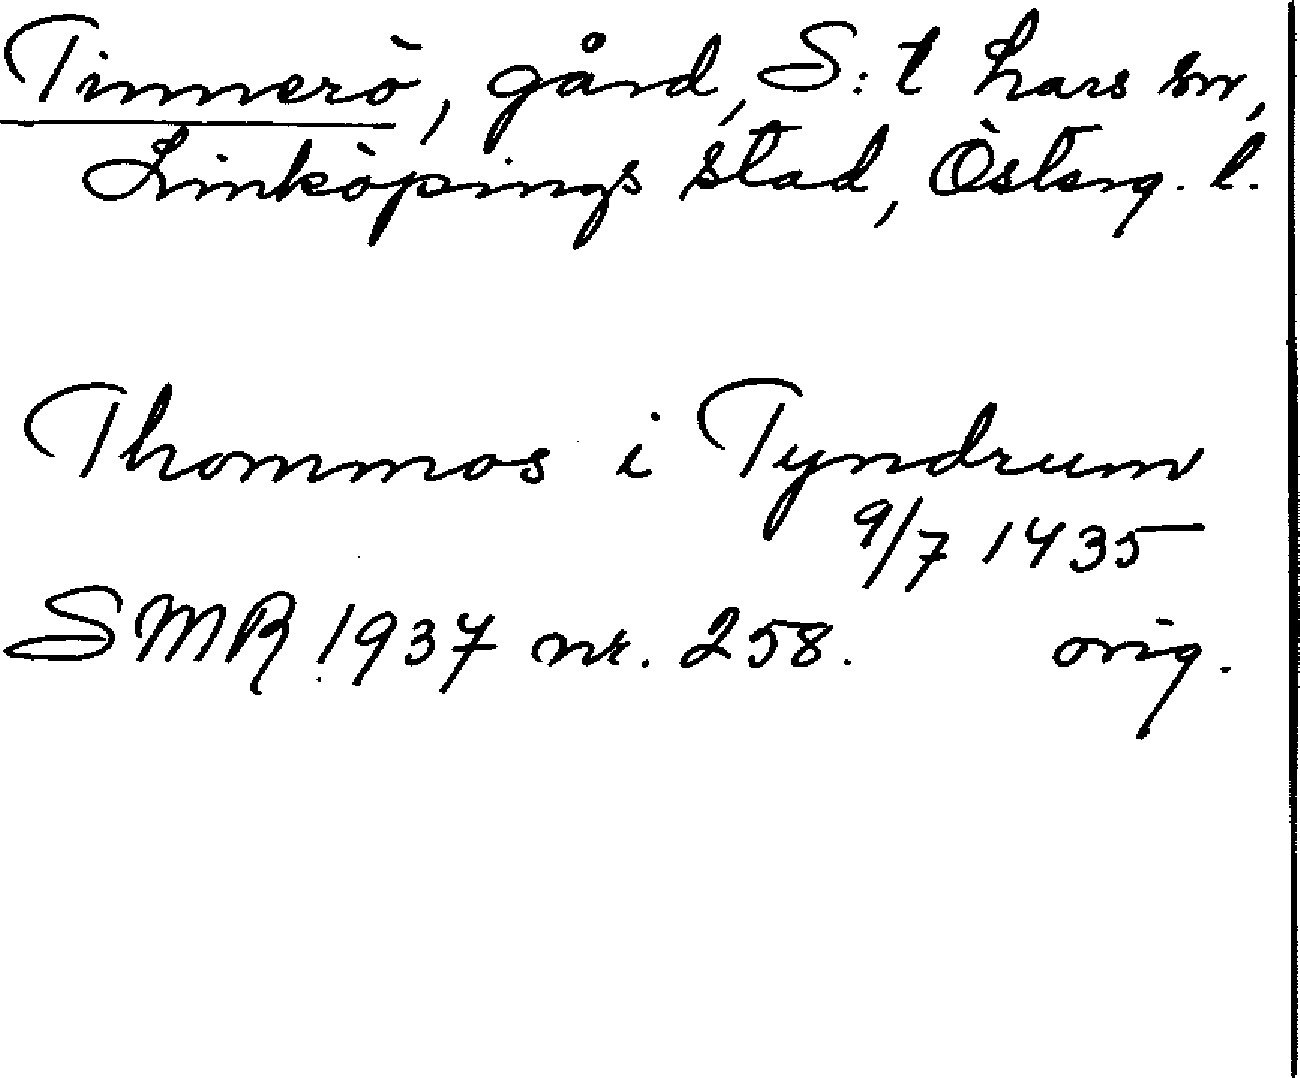 Tinnerö, gård, S:t Lars sn,
Linköpings stad, Österg. l.
Thommos i Tyndrum
9/7 1435
SMR 1937 nr. 258. orig.